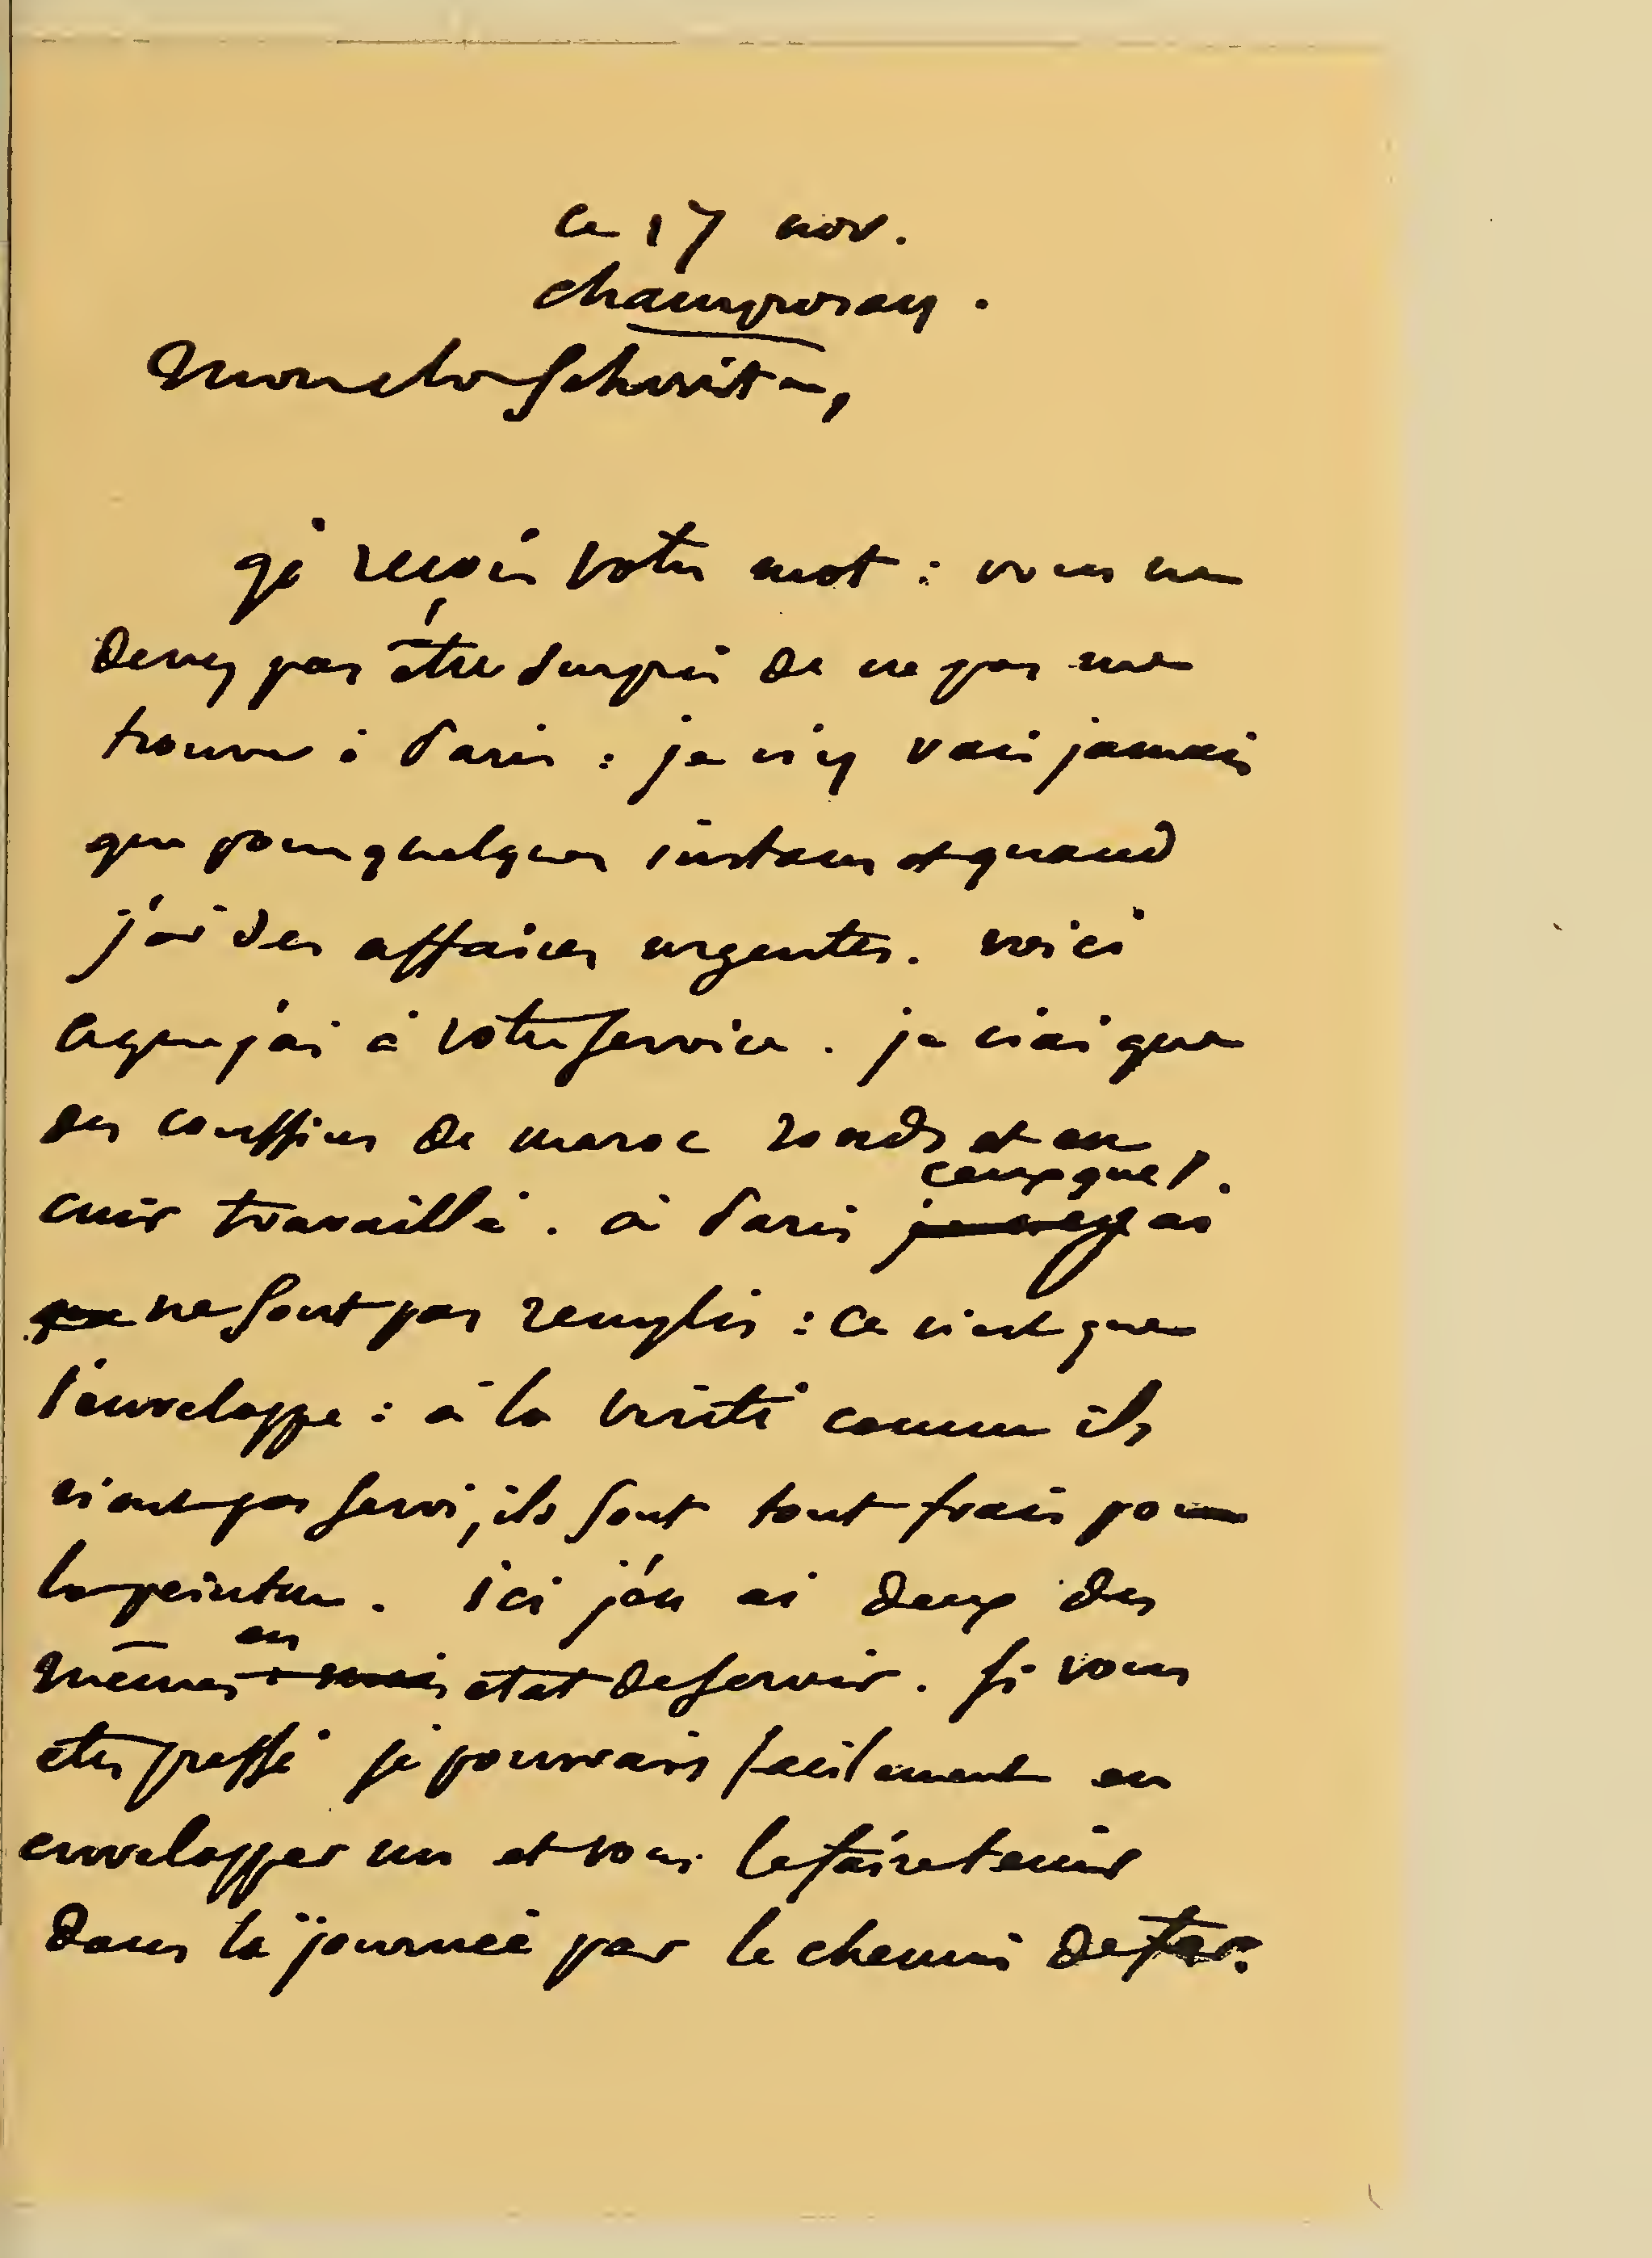 ce 17 nov.
champrosay.
Mon cher Schwiter,
Je reçois votre mot : vous ne
devez pas être surpris de ne pas me
trouver à Paris : je n'y vais jamais
que pour quelques instans et quand
j'ai des affaires urgentes. voici
ce que j'ai à votre service. je n'ai que
des coussins de maroc ronds et en
cuir travaillé. à Paris ceux que j'ai
ne sont pas remplis : ce n'est que
l'enveloppe : à la vérité comme ils
n'ont pas servi, ils sont tout frais pour
la peinture. ici j'en ai deux des
mêmes en etat de servir. si vous
etes pressé je pourrais facilement en
envelopper un et vous le faire tenir
dans la journée par le chemin de fer.